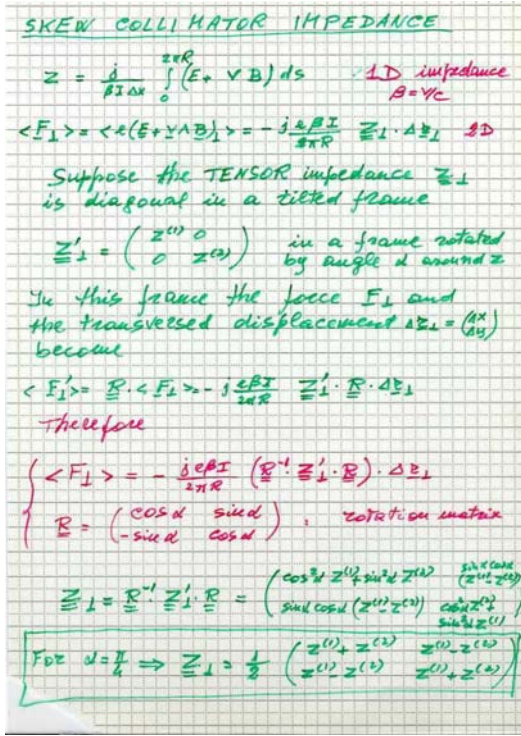 SKEW COLLIMATOR IMPEDANCE
Z = j/(βIΔx) ∫₀^{2πR} (E + VB) ds   1D impedance
β = V/c
<F⊥> = <e(E + V∧B)⊥> = -j eβI/(2πR) Z⊥ · Δr⊥   2D
Suppose the TENSOR impedance Z⊥
is diagonal in a tilted frame
Z'⊥ = ( Z⁽¹⁾ 0 ; 0 Z⁽²⁾ )   in a frame rotated
by angle α around z
In this frame the force F⊥ and
the transversed displacement Δr⊥ = (Δx ; Δy)
become
<F'⊥> = R · <F⊥> = -j eβI/(2πR) Z'⊥ · R · Δr⊥
Therefore
<F⊥> = - jeβI/(2πR) (R⁻¹ · Z'⊥ · R) · Δr⊥
R = ( cosα sinα ; -sinα cosα ) : rotation matrix
Z⊥ = R⁻¹ · Z'⊥ · R = ( cos²α Z⁽¹⁾ + sin²α Z⁽²⁾   sinα cosα (Z⁽¹⁾ - Z⁽²⁾) ; sinα cosα (Z⁽¹⁾ - Z⁽²⁾)   cos²α Z⁽²⁾ + sin²α Z⁽¹⁾ )
For α = π/4 ⇒ Z⊥ = 1/2 ( Z⁽¹⁾ + Z⁽²⁾   Z⁽¹⁾ - Z⁽²⁾ ; Z⁽¹⁾ - Z⁽²⁾   Z⁽¹⁾ + Z⁽²⁾ )